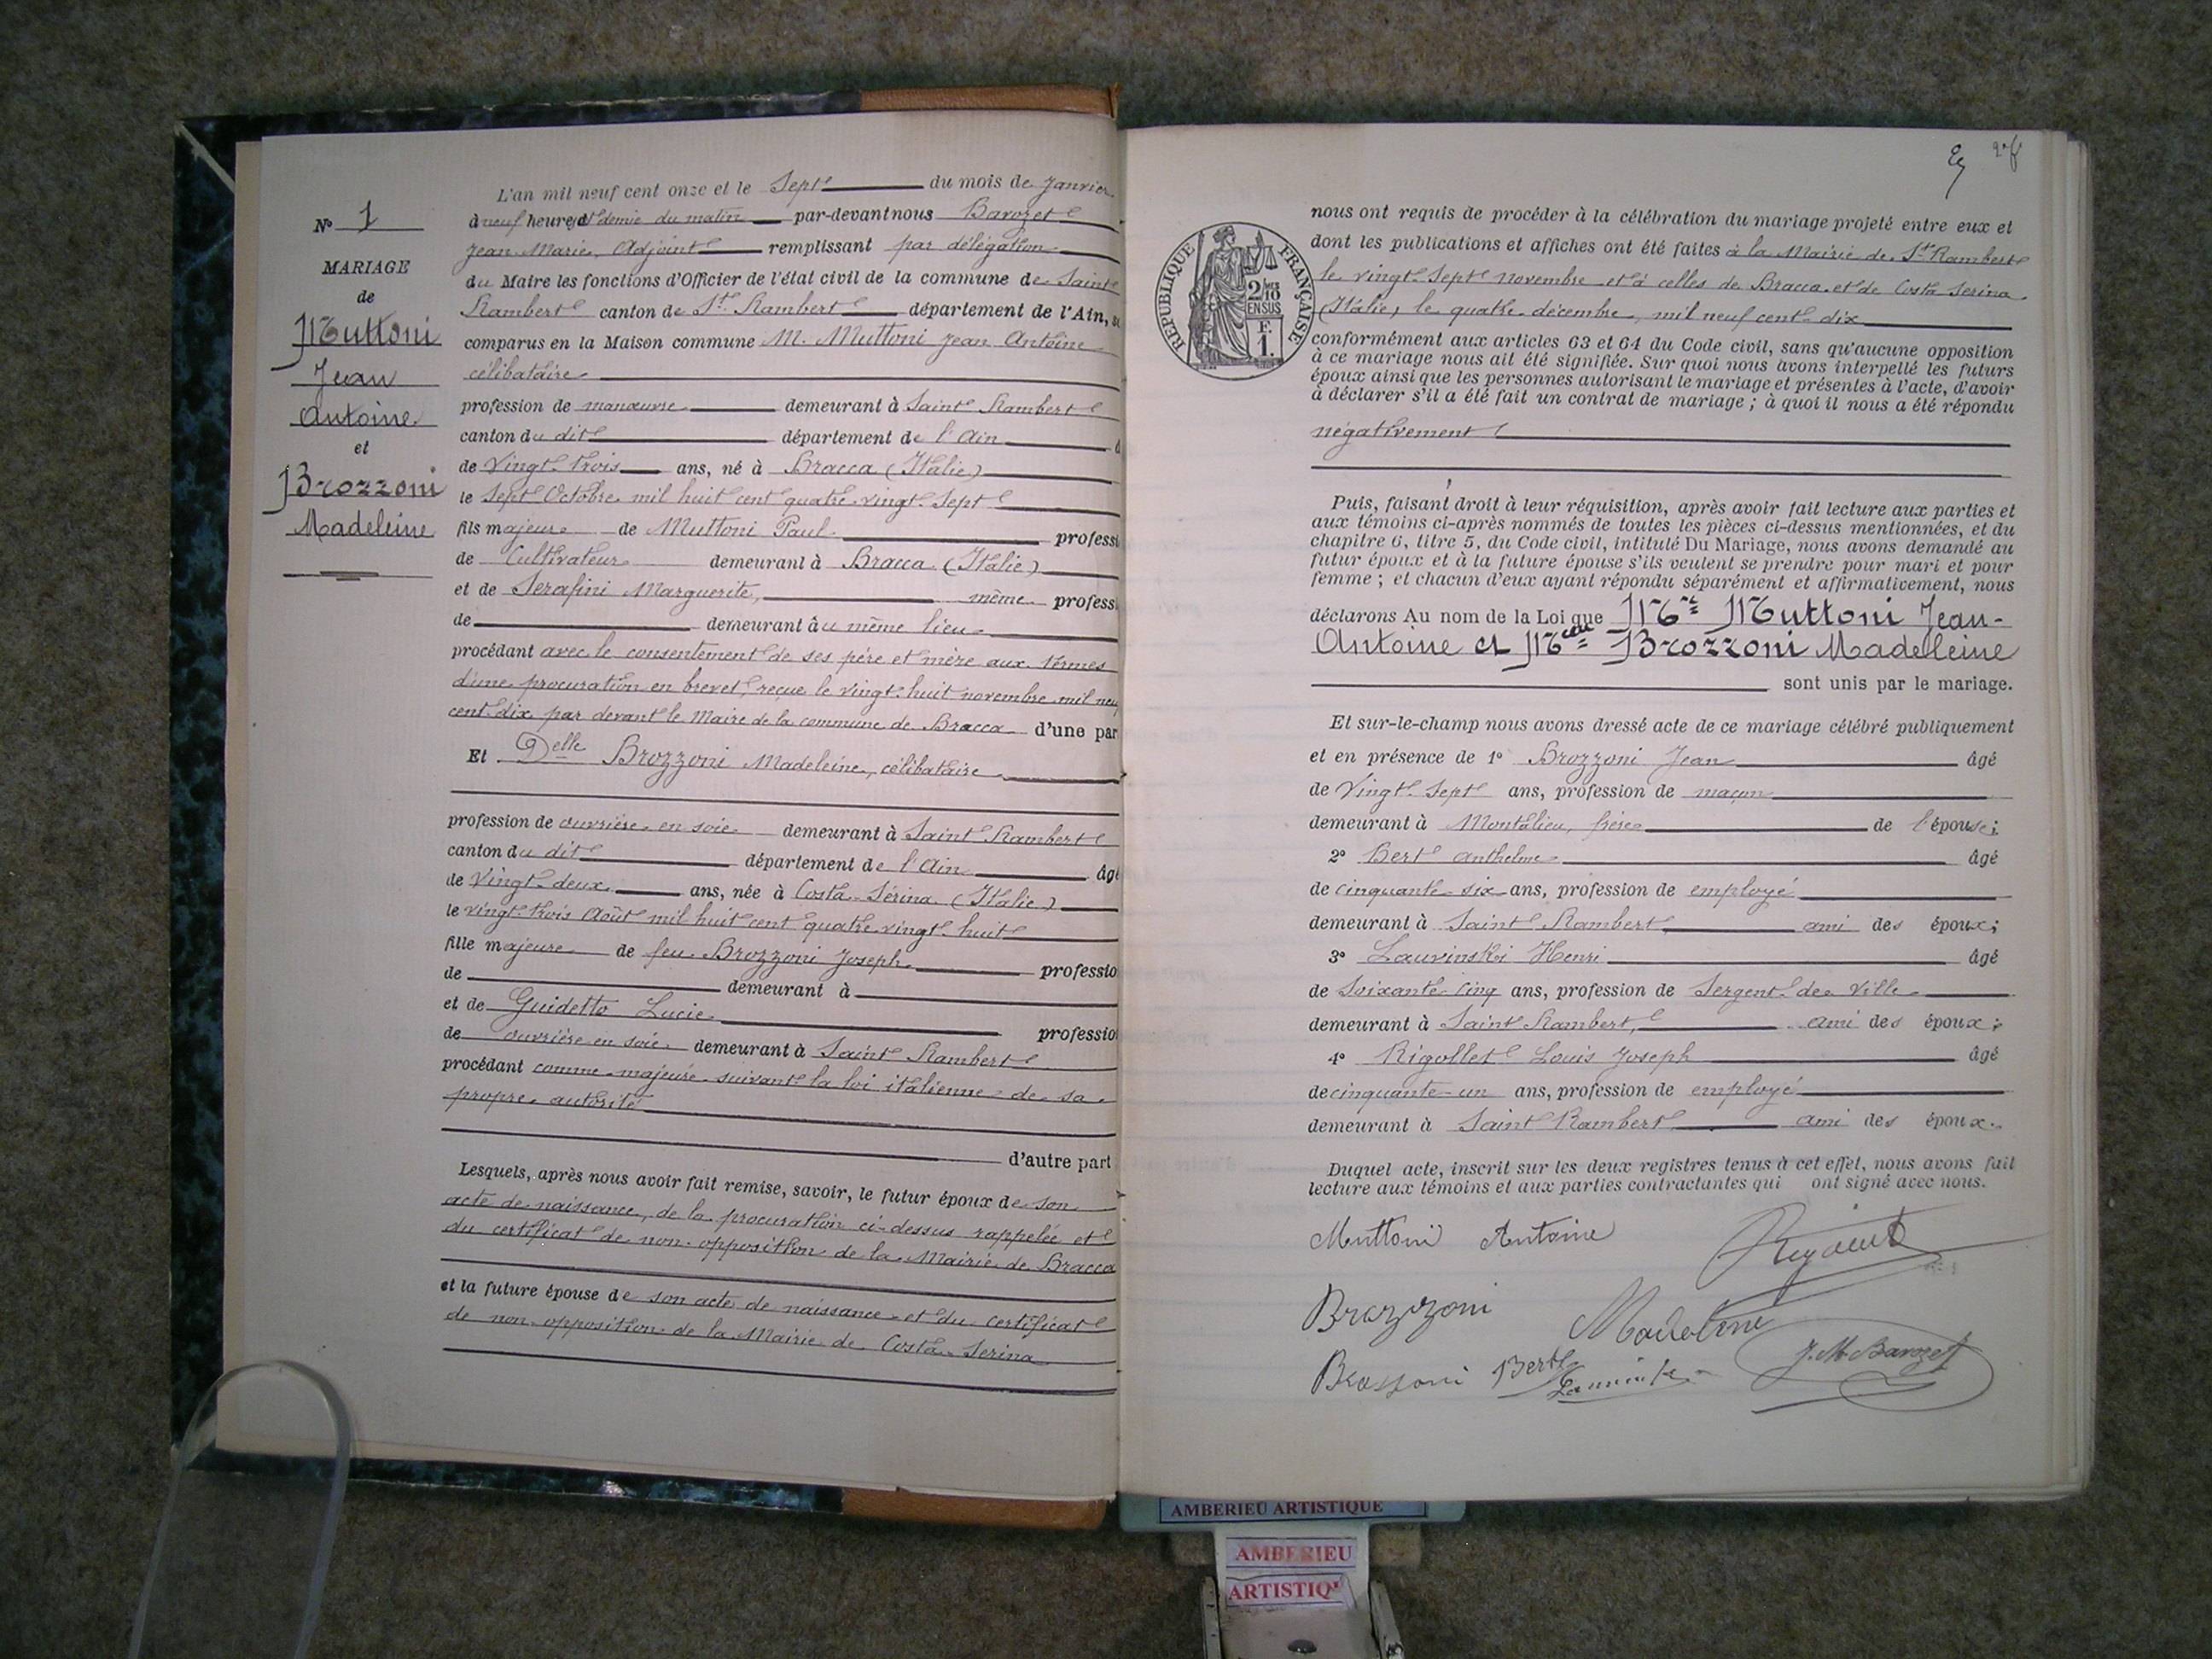 N° 1
MARIAGE
de
Muttoni
Jean
Antoine
et
Brozzoni
Madeleine
L'an mil neuf cent onze et le Sept du mois de Janvier
à neuf heures et demie du matin par-devant nous Barozet
Jean Marie, Adjoint remplissant par délégation
du Maire les fonctions d'Officier de l'état civil de la commune de Saint
Rambert canton de St. Rambert département de l'Ain,
comparus en la Maison commune M. Muttoni Jean Antoine
célibataire
profession de manœuvre demeurant à Saint Rambert
canton du dit département de l'Ain
de Vingt trois ans, né à Bracca (Italie)
le Sept Octobre mil huit cent quatre vingt Sept
fils majeur de Muttoni Paul professi
de Cultivateur demeurant à Bracca (Italie)
et de Serafini Marguerite, même professi
de demeurant au même lieu
procédant avec le consentement de ses père et mère aux termes
d'une procuration en brevet, reçue le vingt huit novembre mil neuf
cent dix par devant le Maire de la commune de Bracca d'une par
Et Delle Brozzoni Madeleine, célibataire
profession de ouvrière en soie demeurant à Saint Rambert
canton du dit département de l'Ain âgé
de Vingt deux ans, née à Costa Sérina (Italie)
le vingt trois Août mil huit cent quatre vingt huit
fille majeure de feu Brozzoni Joseph professio
de demeurant à
et de Guidetto Lucie professio
de ouvrière en soie demeurant à Saint Rambert
procédant comme majeure suivant la loi italienne de sa
propre autorité
d'autre part
Lesquels, après nous avoir fait remise, savoir, le futur époux de son
acte de naissance, de la procuration ci-dessus rappelée et
du certificat de non opposition de la Mairie de Bracca
et la future épouse de son acte de naissance et du certificat
de non opposition de la Mairie de Costa Serina
nous ont requis de procéder à la célébration du mariage projeté entre eux et
dont les publications et affiches ont été faites à la Mairie de St. Rambert
le vingt Sept novembre et à celles de Bracca et de Costa Serina
(Italie) le quatre décembre mil neuf cent dix
RÉPUBLIQUE FRANÇAISE
2/10
EN SUS
F.
1.
conformément aux articles 63 et 64 du Code civil, sans qu'aucune opposition
à ce mariage nous ait été signifiée. Sur quoi nous avons interpellé les futurs
époux ainsi que les personnes autorisant le mariage et présentes à l'acte, d'avoir
à déclarer s'il a été fait un contrat de mariage ; à quoi il nous a été répondu
négativement
Puis, faisant droit à leur réquisition, après avoir fait lecture aux parties et
aux témoins ci-après nommés de toutes les pièces ci-dessus mentionnées, et du
chapitre 6, titre 5, du Code civil, intitulé Du Mariage, nous avons demandé au
futur époux et à la future épouse s'ils veulent se prendre pour mari et pour
femme ; et chacun d'eux ayant répondu séparément et affirmativement, nous
déclarons Au nom de la Loi que Mr Muttoni Jean-
Antoine et Melle Brozzoni Madeleine
sont unis par le mariage.
Et sur-le-champ nous avons dressé acte de ce mariage célébré publiquement
et en présence de 1° Brozzoni Jean âgé
de Vingt Sept ans, profession de maçon
demeurant à Montalieu, frère de l'épouse;
2° Bert Anthelme âgé
de cinquante six ans, profession de employé
demeurant à Saint Rambert ami des époux;
3° Lauvinski Henri âgé
de Soixante cinq ans, profession de Sergent de Ville
demeurant à Saint Rambert, ami des époux;
4° Rigollet Louis Joseph âgé
de cinquante un ans, profession de employé
demeurant à Saint Rambert ami des époux.
Duquel acte, inscrit sur les deux registres tenus à cet effet, nous avons fait
lecture aux témoins et aux parties contractantes qui ont signé avec nous.
Muttoni Antoine
Brozzoni Madeleine
Bert
J. M. Barozet
AMBERIEU ARTISTIQUE
AMBERIEU
ARTISTIQ